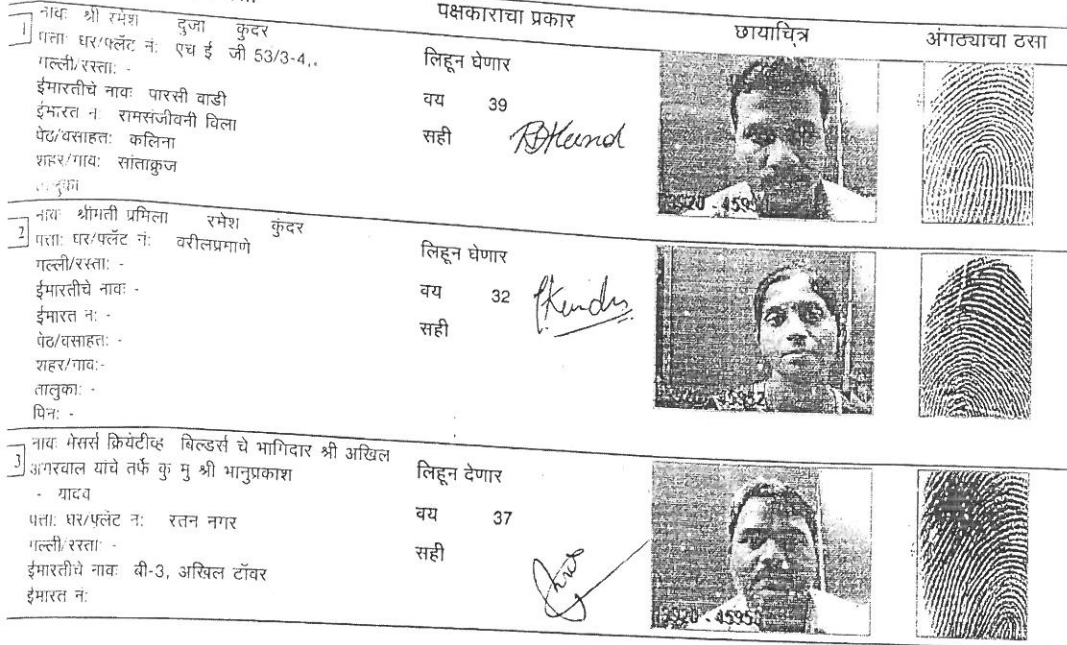 पक्षकाराचा प्रकार
छायाचित्र
अंगठ्याचा ठसा
1
नावः श्री रमेश दुजा कुंदर
पत्ताः घर/फ्लॅट नं: एच ई जी 53/3-4,.
गल्ली/रस्ताः -
ईमारतीचे नावः पारसी वाडी
ईमारत नं: रामसंजीवनी विला
पेठ/वसाहतः कलिना
शहर/गावः सांताक्रुज
तालुका
लिहून घेणार
वय 39
सही
2
नावः श्रीमती प्रमिला रमेश कुंदर
पत्ताः घर/फ्लॅट नं: वरीलप्रमाणे
गल्ली/रस्ताः -
ईमारतीचे नावः -
ईमारत नं: -
पेठ/वसाहतः -
शहर/गावः-
तालुकाः -
पिनः -
लिहून घेणार
वय 32
सही
3
नावः मेसर्स क्रियेटीव्ह बिल्डर्स चे भागिदार श्री अखिल
अगरवाल यांचे तर्फे कु मु श्री भानुप्रकाश
- यादव
पत्ताः घर/फ्लॅट नं: रतन नगर
गल्ली/रस्ताः -
ईमारतीचे नावः बी-3, अखिल टॉवर
ईमारत नं:
लिहून देणार
वय 37
सही